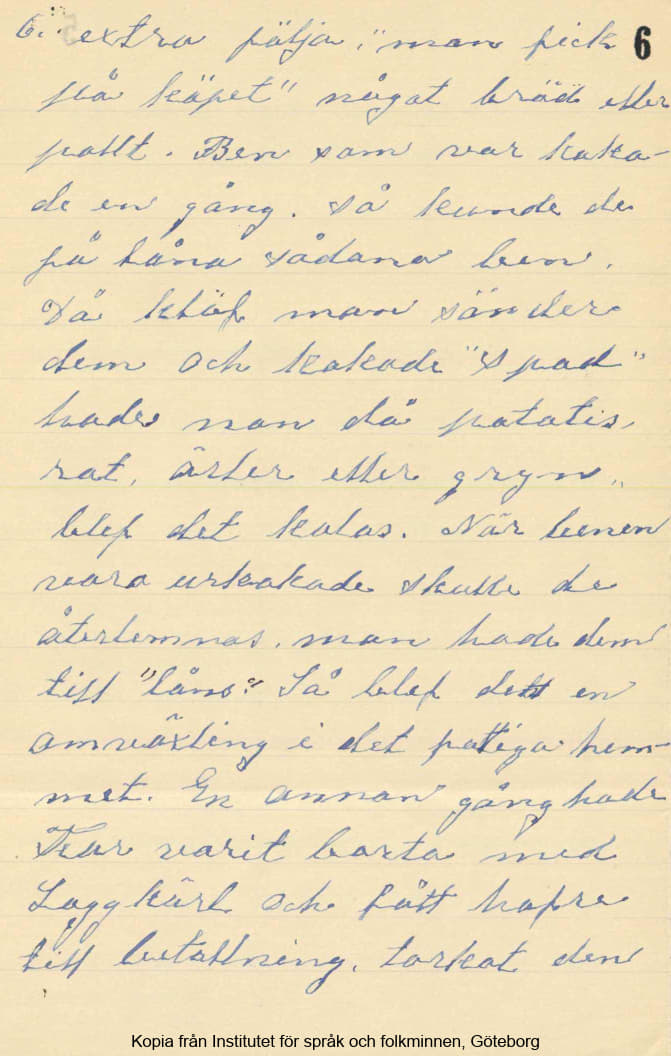 6. extra pälja, "man fick 6
på köpet" något bröd eller
pallt. Ben som var koka-
de en gång. så kunde de
få låna sådana ben.
Då klöf man sönder
dem och kokade "spad"
hade man då potatis,
rot, ärter eller gryn,,
blef det kalas. När benen
voro urkokade skulle de
återlemnas. man hade dem
till "låns." Så blef dett en
omväxling i det fattiga hem-
met. En annan gång hade
Far varit borta med
Laggkärl och fått hafre
till betallning. torkat den
Kopia från Institutet för språk och folkminnen, Göteborg